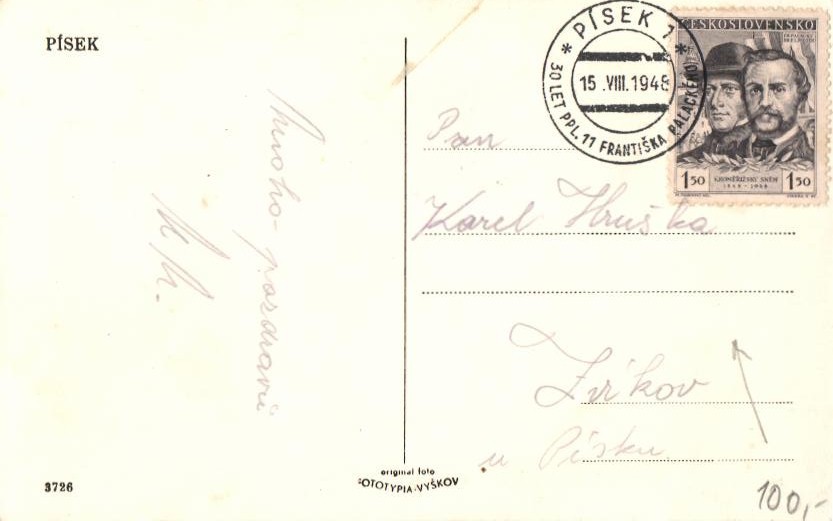 PÍSEK
Mnoho pozdravů
PÍSEK 1
15.VIII.1948
30 LET PPL. 11 FRANTIŠKA PALACKÉHO
ČESKOSLOVENSKO
1 50
KROMĚŘÍŽSKÝ SNĚM
1848-1948
1 50
Pan
Karel Hruška
Zvíkov
u Písku
3726
original foto
FOTOTYPIA-VYŠKOV
100,-